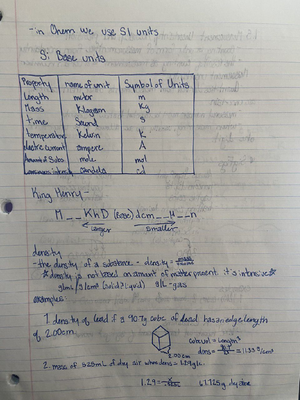 -in Chem we use SI units
Si Base units
Property name of unit Symbol of Units
Length meter m
Mass Kilogram Kg
time Second s
temperature Kelvin K
electric current ampere A
Amount of Subs. mole mol
Luminous intensity candela cd
King Henry-
M _ _ K h D (base) d c m _ _ μ _ _ n
Larger smaller
density
-the density of a substance - density =
density is not based on amount of matter present, it's intensive
g/mL g/cm³ (solid/liquid) g/L - gas
examples
1. density of lead if a 90.7g cube of lead has an edge length
of 2.00cm
cube vol = length³
2.00cm
dens = = 11.33 g/cm³
2. mass of 525mL of dry air when dens = 1.29g/L
1.29 =